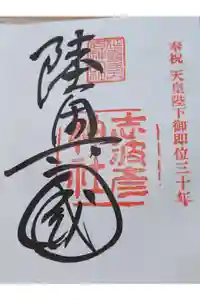 奉祝 天皇陛下御即位三十年
陸奥國
志波彦
神社